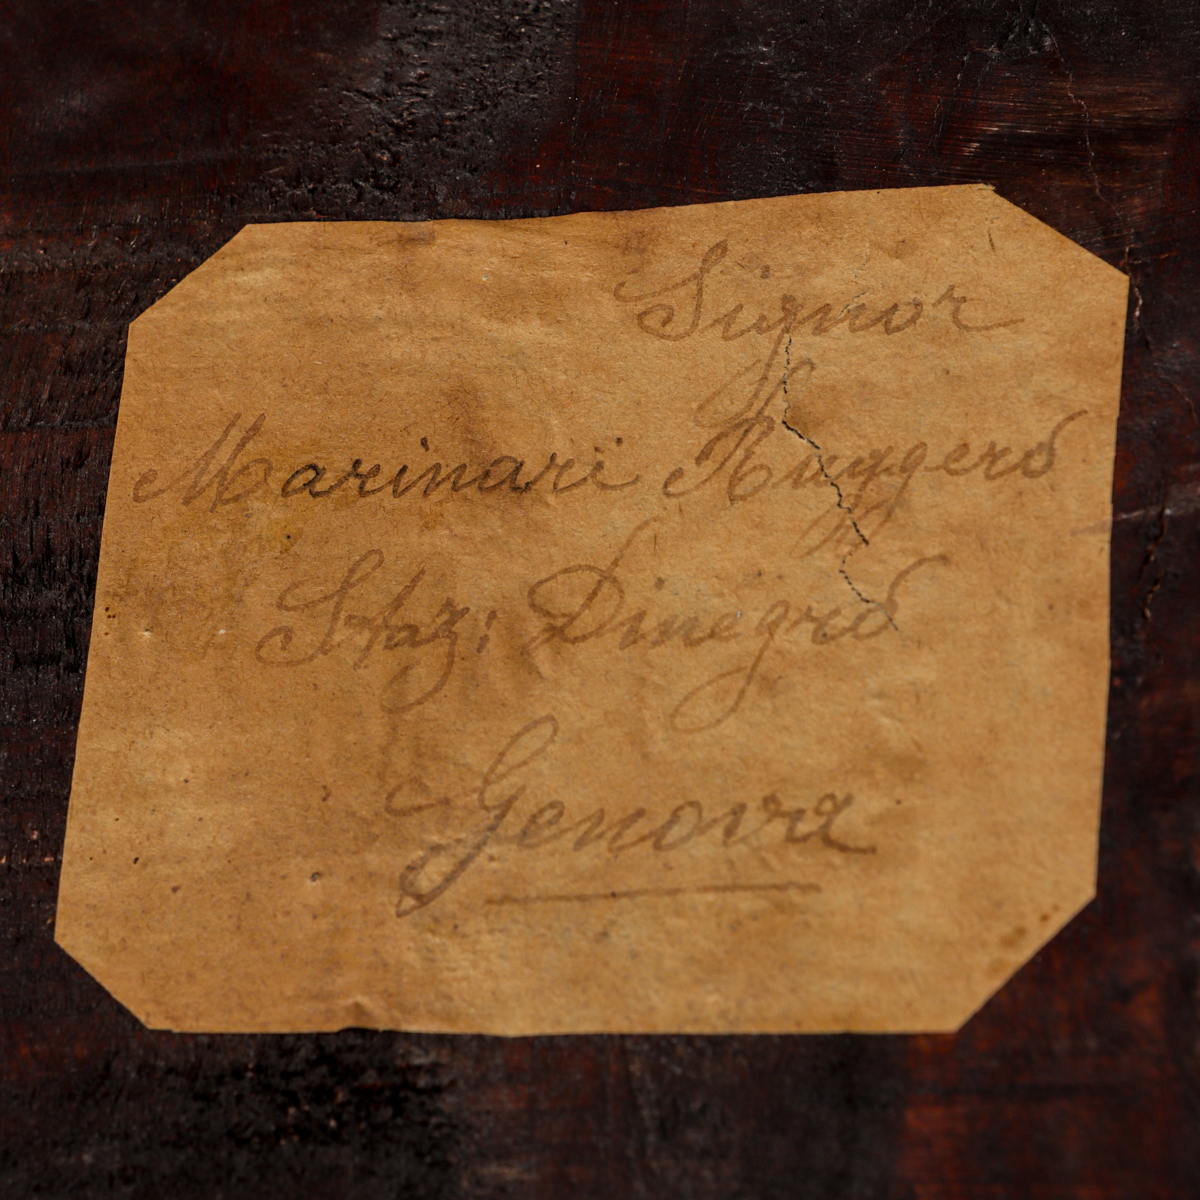 Signor
Marinari Ruggero
Staz: Dinegro
Genova